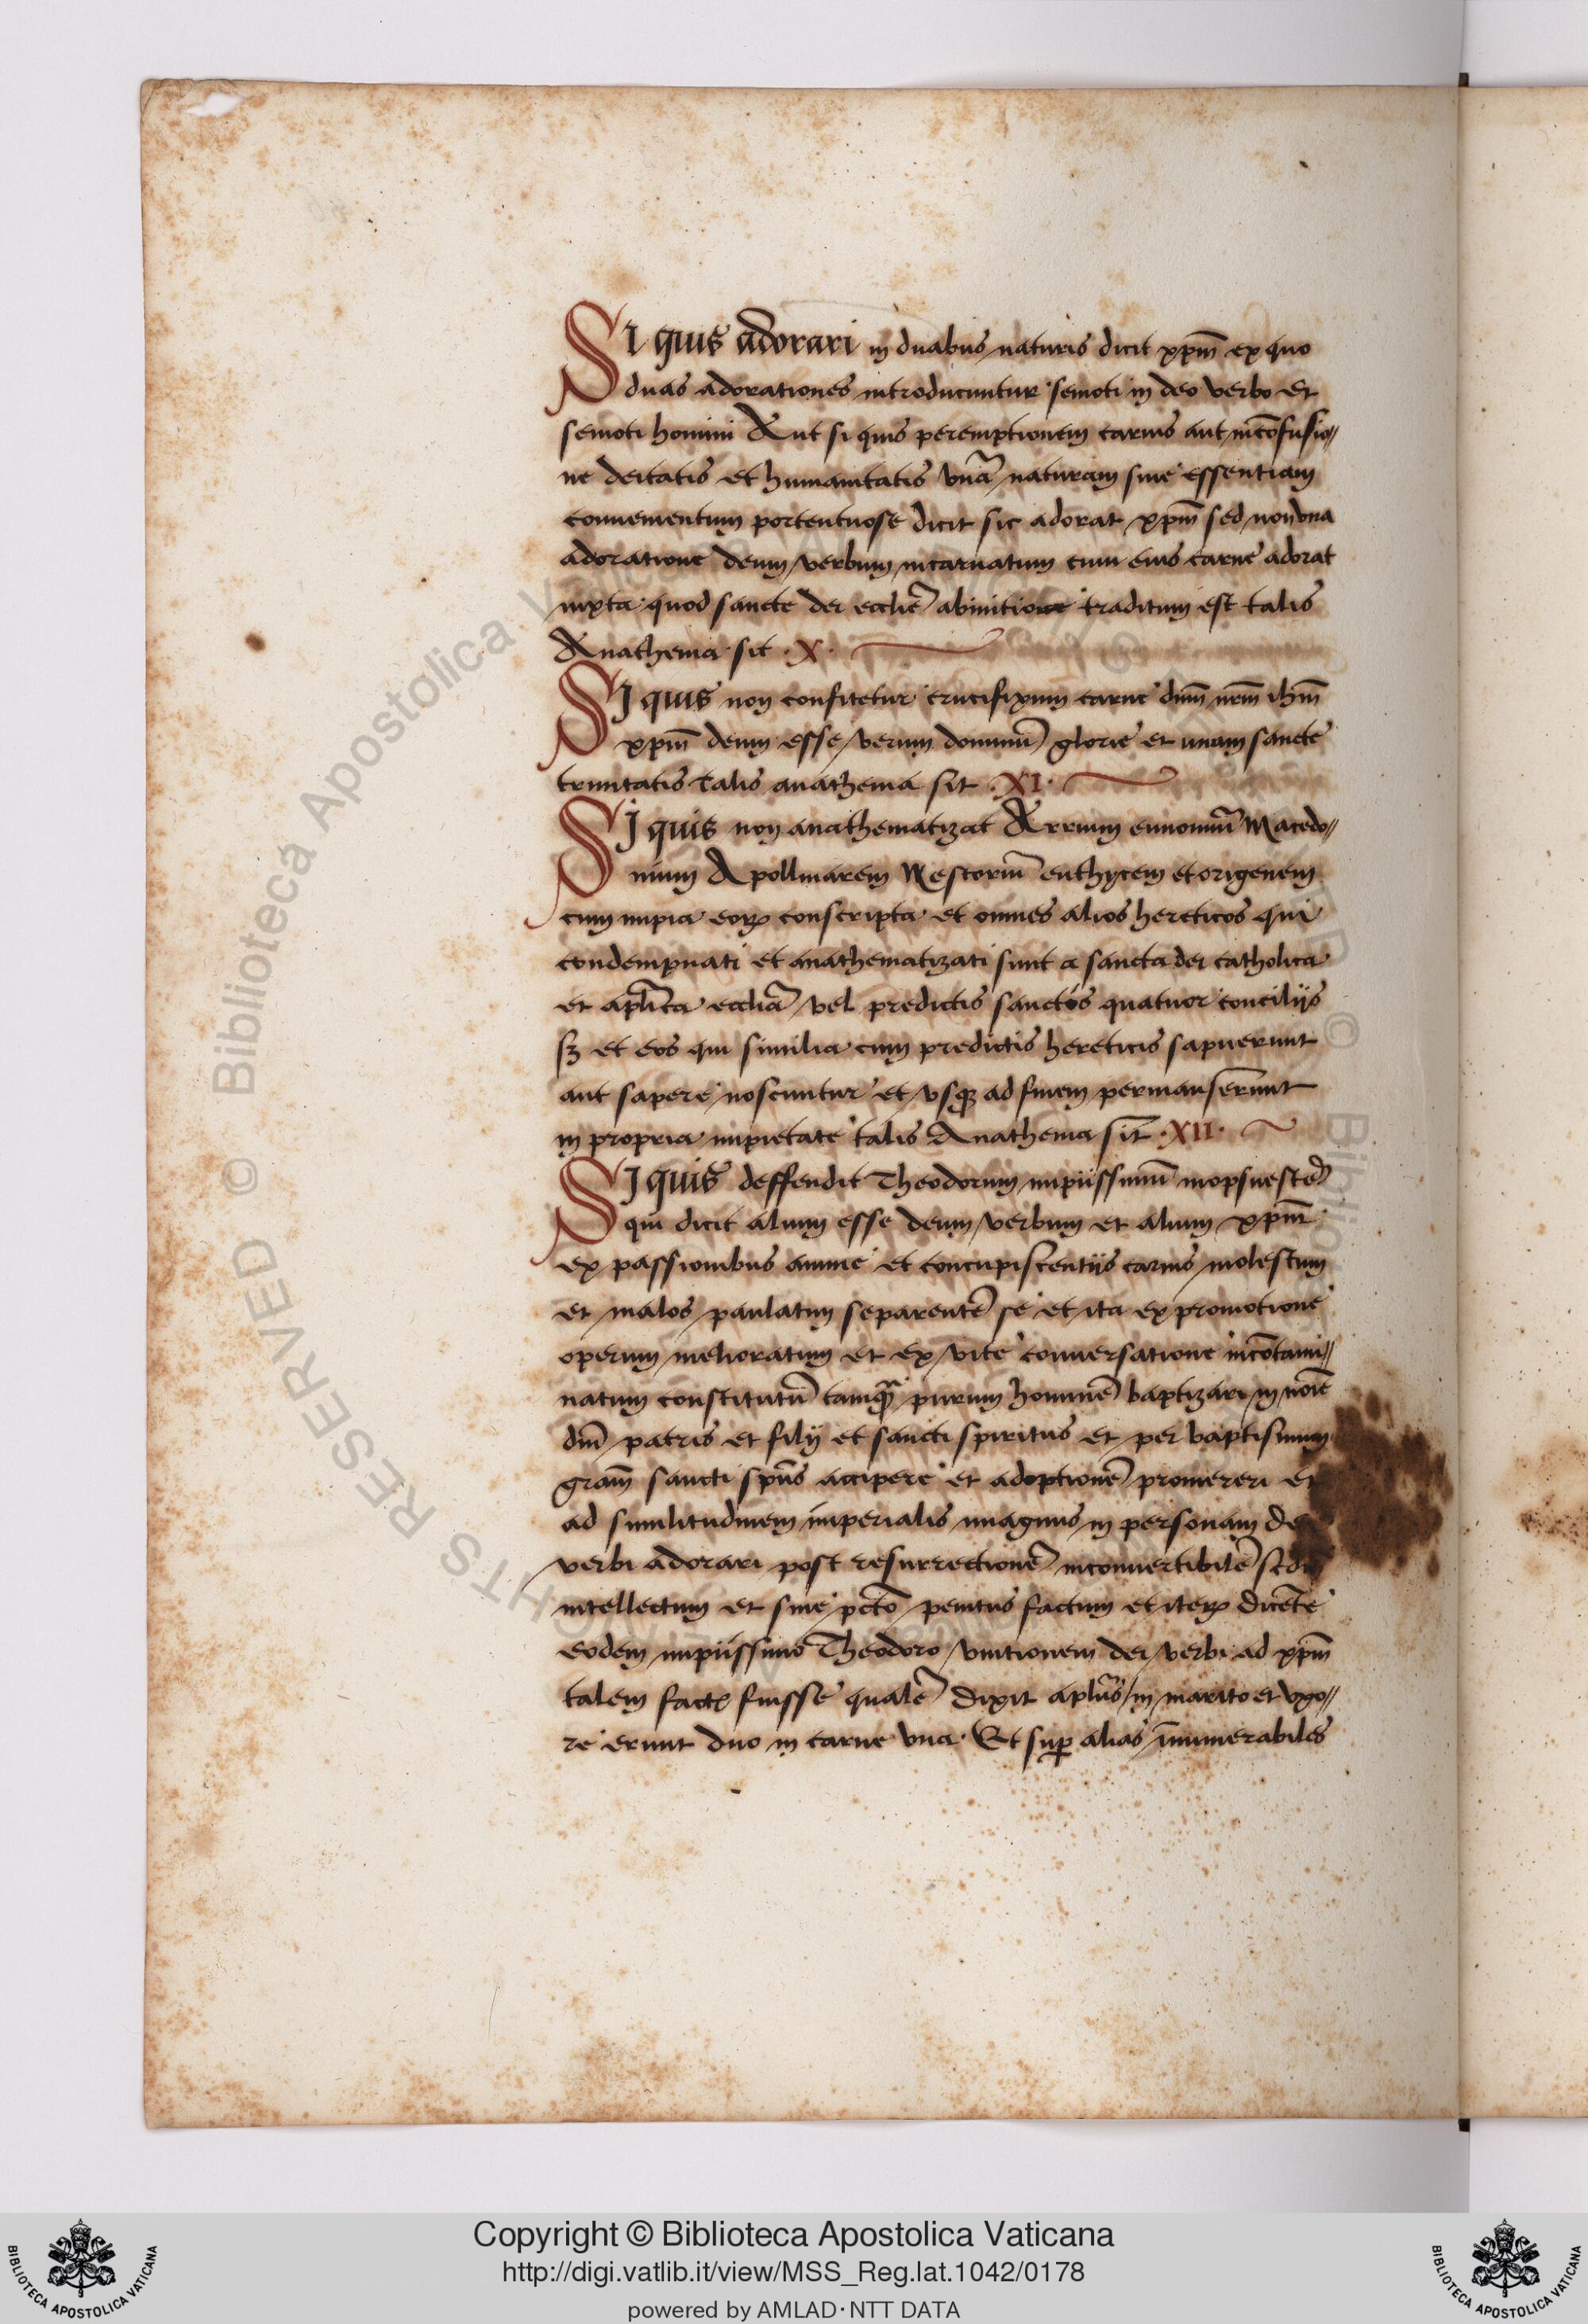 SI quis adorari in duabus naturis dicit xp̄m ex quo
duas adorationes introducuntur semoti in deo verbo et
semoti homini Aut si quis peremptionem carnis aut in cōfusio//
ne deitatis et humanitatis vnā naturam siue essentiam
conuenientium portentuose dicit sic adorat xp̄m sed non vna
adoratione deum verbum incarnatum cum eius carne adorat
iuxta quod sancte dei ecclīe ab initio traditum est talis
Anathema sit .X.
SI quis non confitetur crucifixum carne dn̄m nr̄m ihm̄
xp̄m deum esse verum dominū glorie et unam sancte
trinitatis talis anathema sit .XI.
SI quis non anathematizat Arrium eunomiū Macedo//
nium Apollinarem Nestoriū euthycem et origenem
cum impia eoꝝ conscripta et omnes alios hereticos qui
condempnati et anathematizati sunt a sancta dei catholica
et apl̄ica eccliā vel predictis sanctis quatuor conciliis
sꝫ et eos qui similia cum predictis hereticis sapuerunt
aut sapere noscuntur et vsqꝫ ad finem permanserunt
in propria impietate talis Anathema sit .XII.
SI quis deffendit Theodorum impiissimū mopsuestē
qui dicit alium esse deum verbum et alium xp̄m
ex passionibus anime et concupiscentiis carnis molestum
et malos paulatim separentē se et ita ex promotione
operum melioratum et ex vite conuersatione incōtami//
natum constitutū tamqꝫ purum hominē baptizari in noīe
dn̄i patris et filij et sancti spiritus et per baptismum
grām sancti sp̄us accipere et adoptionē promereri et
ad similitudinem imperialis imaginis in personam dei
verbi adorari post resurrectionē inconuertibilē
intellectum et sine pctō penitus factum et iteꝝ dicēte
eodem impiissimo Theodoro vnitionem dei verbi ad xp̄m
talem factā fuisse qualē dixit aplūs in marito et vxo//
re erunt duo in carne vna. Et suꝑ alias īnumerabiles
Copyright © Biblioteca Apostolica Vaticana
http://digi.vatlib.it/view/MSS_Reg.lat.1042/0178
powered by AMLAD·NTT DATA
BIBLIOTECA APOSTOLICA VATICANA
BIBLIOTECA APOSTOLICA VATICANA